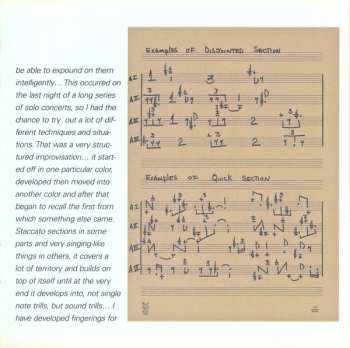 be able to expound on them
intelligently... This occurred on
the last night of a long series
of solo concerts, so I had the
chance to try out a lot of dif-
ferent techniques and situa-
tions. That was a very struc-
tured improvisation... it start-
ed off in one particular color,
developed then moved into
another color and after that
began to recall the first from
which something else came.
Staccato sections in some
parts and very singing-like
things in others, it covers a
lot of territory and builds on
top of itself until at the very
end it develops into, not single
note trills, but sound trills... I
have developed fingerings for
Examples of Disjointed Section
AI 1 3
AII
AIII 1
AIV 2 2
Examples of Quick Section
AI
AII
AIII
AIV